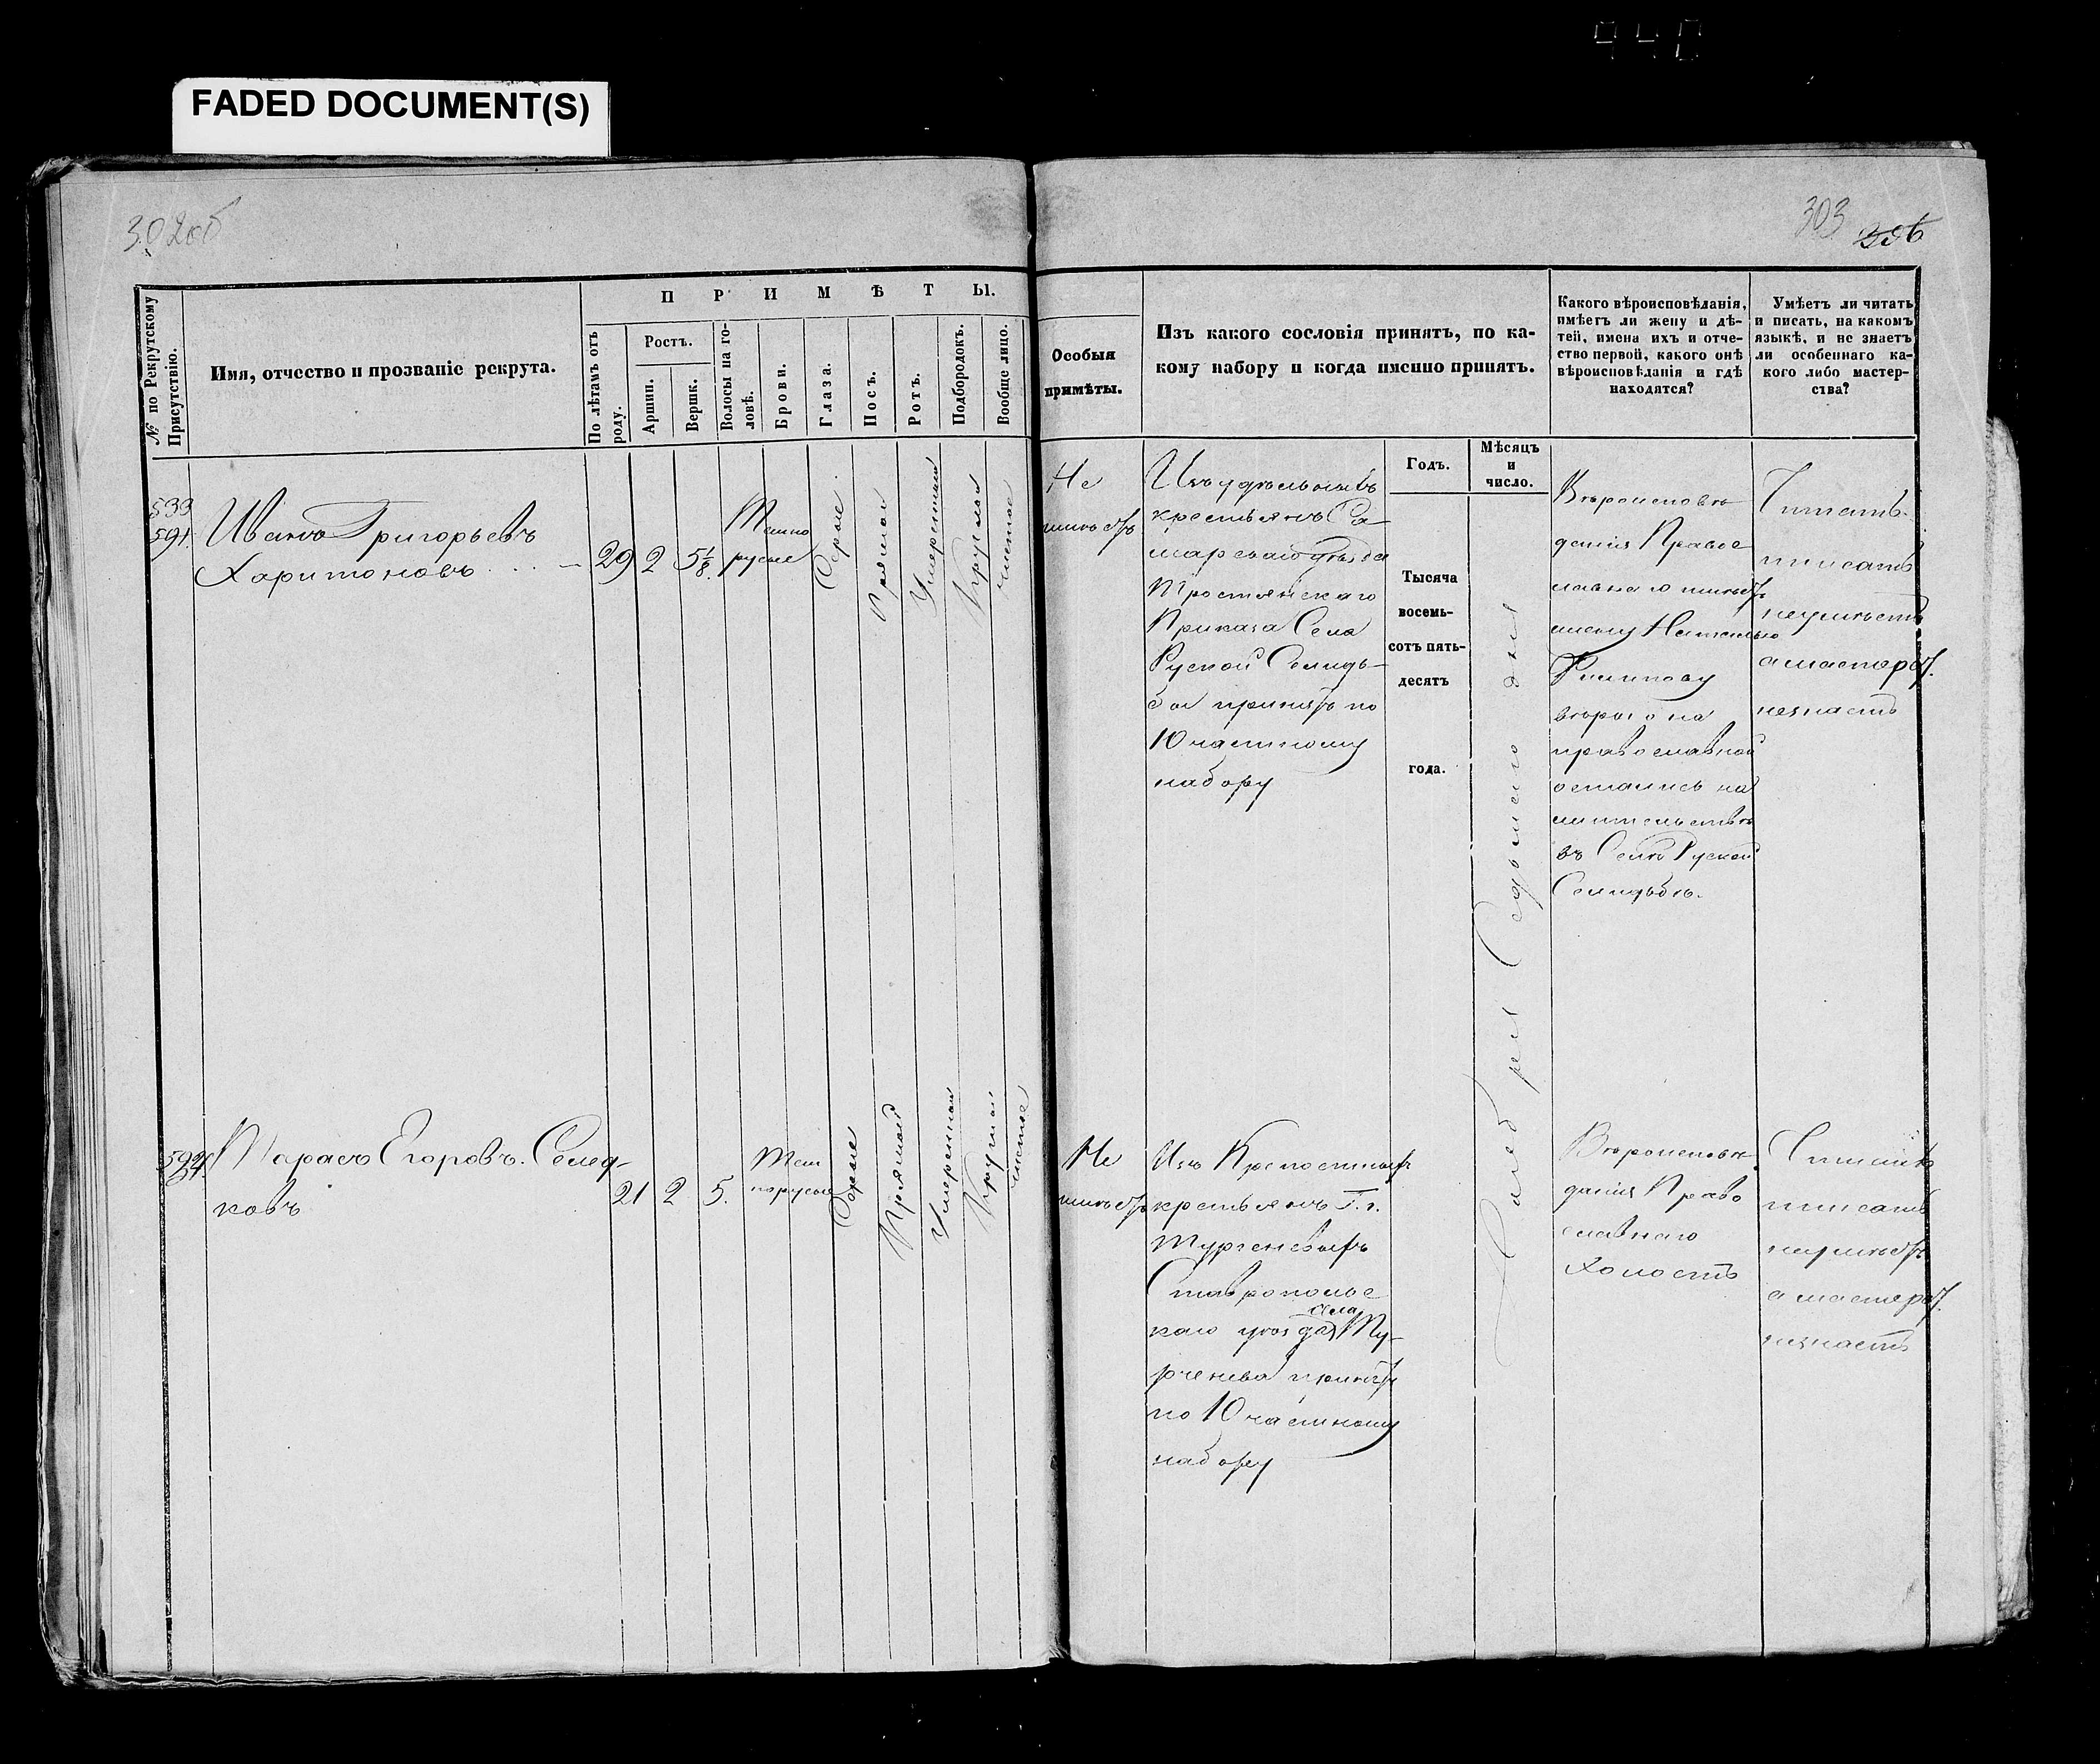 440
FADED DOCUMENT(S)
302об
303
306
№ по Рекрутскому Присутствію.
Имя, отчество и прозваніе рекрута.
П Р И М Ѣ Т Ы.
По лѣтамъ отъ роду.
Ростъ.
Аршин.
Вершк.
Волосы на головѣ.
Брови.
Глаза.
Носъ.
Ротъ.
Подбородокъ.
Вообще лицо.
Особыя
примѣты.
Изъ какого сословія принятъ, по ка-
кому набору и когда именно принятъ.
Какого вѣроисповѣданія,
имѣетъ ли жену и дѣ-
тей, имена ихъ и отче-
ство первой, какого онѣ
вѣроисповѣданія и гдѣ
находятся?
Умѣетъ ли читать
и писать, на какомъ
языкѣ, и не знаетъ
ли особеннаго ка-
кого либо мастер-
ства?
533
591
Иванъ Григорьевъ
Харитоновъ
29
2
5 1/8.
Темно
русые
Сѣрые
Прямой
Умеренный
Круглый
чистое
Не
имѣетъ
Изъ удѣльныхъ
крестьянъ Са-
марскаго уѣзда
Тростянскаго
Приказа Села
Руской Селидь-
бы принятъ по
10 частному
набору
Годъ.
Тысяча
восемь-
сотъ пять-
десятъ
года.
Мѣсяцъ
и
число.
Ноября Седьмаго дня
Вѣроисповѣ
данія Правос
лавнаго имѣетъ
жену Наталью
Филипову
вѣроисп
православной
остались на
жительствѣ
въ Селѣ Руской
Селидьбѣ.
Читать
писать
неумѣетъ
а мастерст.
незнаетъ
592
Тарасъ Егоровъ. Селед-
ковъ
21
2
5.
Тем
норусые
Сѣрые
Прямой
Умеренный
Круглый
чистое
Не
имѣетъ
Изъ Крепостныхъ
крестьянъ Г. г.
Тургеневыхъ
Ставропольс
каго уѣзда села Ту-
ргенева принятъ
по 10 частному
набору
Вѣроисповѣ
данія Право
славнаго
Холостъ
Читать
писать
неумѣетъ
а мастерст.
незнаетъ